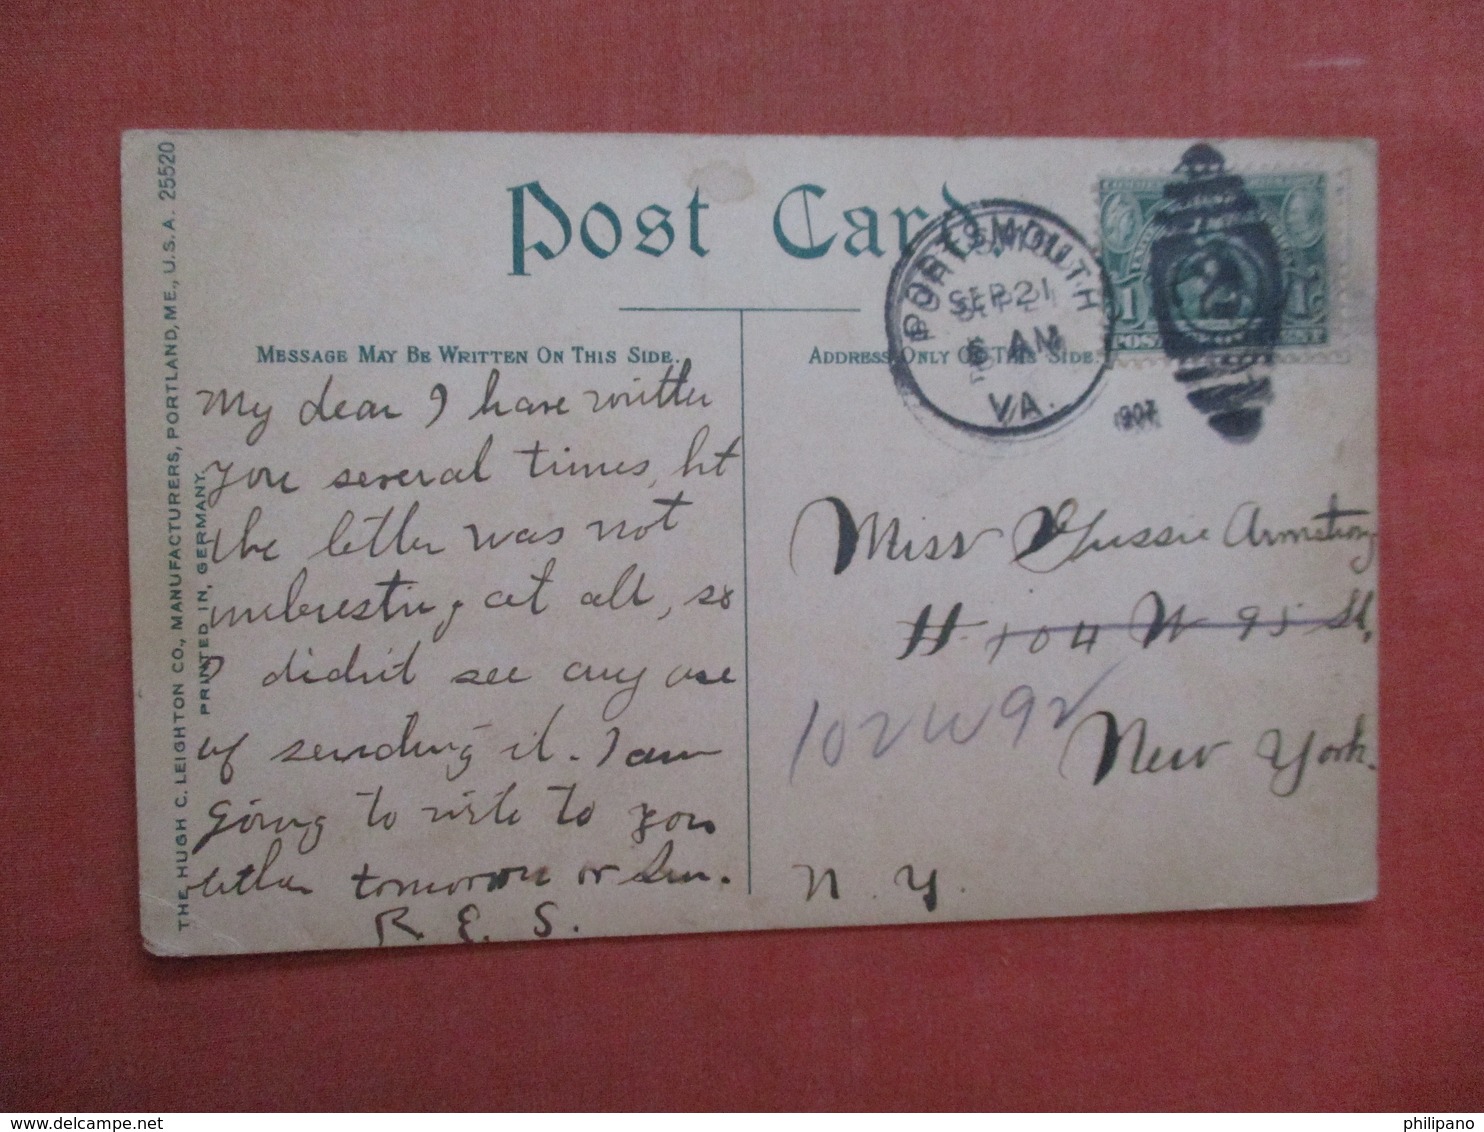 Post Card
MESSAGE MAY BE WRITTEN ON THIS SIDE.
My dear I have written
you several times, but
the letter was not
interesting at all, so
I didn't see any use
of sending it. I am
going to write to you
either tomorrow or Sun.
R. E. S.
ADDRESS ONLY ON THIS SIDE.
PORTSMOUTH
SEP 21
AM
VA.
1907
1 1
Miss Gussie Armstrong
# 104 W 95 St,
102 W 92
New York.
N. Y.
THE HUGH C. LEIGHTON CO., MANUFACTURERS, PORTLAND, ME., U.S.A. 25520
PRINTED IN GERMANY.
delcampe.net
philipano